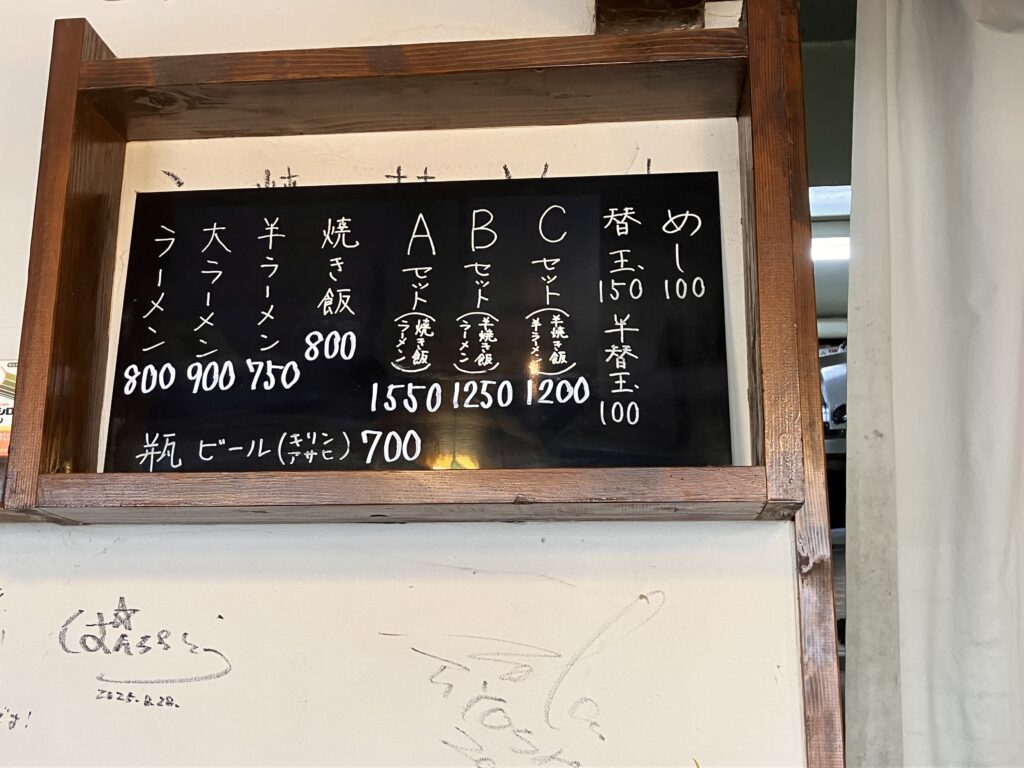 めし 100
替玉 150
半替玉 100
Cセット(半焼き飯 半ラーメン) 1200
Bセット(半焼き飯 ラーメン) 1250
Aセット(焼き飯 ラーメン) 1550
焼き飯 800
半ラーメン 750
大ラーメン 900
ラーメン 800
瓶ビール(キリン アサヒ) 700
2025.6.28.